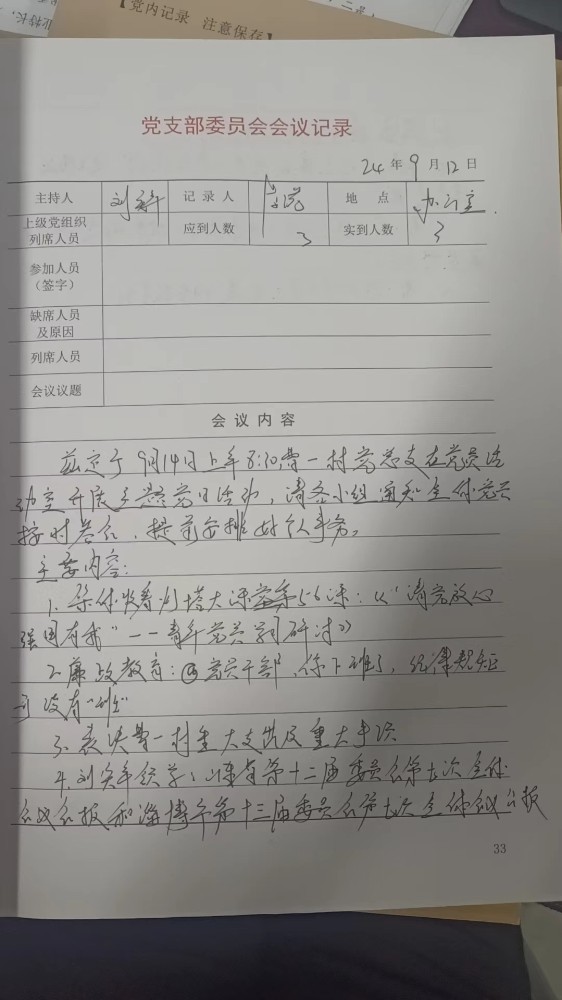 【党内记录 注意保存】
党支部委员会会议记录
24 年 9 月 12 日
主持人 刘 记录人 地点 办公室
上级党组织列席人员 应到人数 3 实到人数 3
参加人员（签字）
缺席人员及原因
列席人员
会议议题
会议内容
兹定于9月14日上午8:30鲁一村党总支在党员活
动室开展主题党日活动，请各小组通知全体党员
按时参会，提前安排好个人事务。
主要内容：
1. 集体收看灯塔大课堂第56课：《"请党放心
强国有我"——青年党员 研讨》
2. 廉政教育：党员干部，你下班了，纪律规矩
可没有"班"
3. 表决鲁一村重大支出及重大事项
4. 刘 领学：山东省第十二届委员会第七次全体
会议公报和淄博市第十三届委员会第七次全体会议公报
33